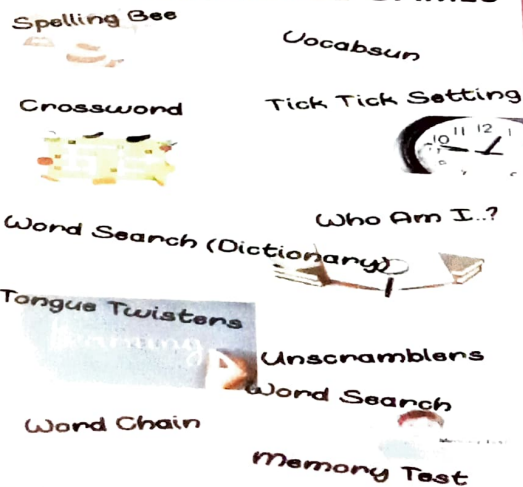 Spelling Bee
Vocabsun
Crossword
Tick Tick Setting
10 11 12 1
Who Am I..?
Word Search (Dictionary)
Tongue Twisters
learning
Unscramblers
Word Search
Word Chain
Memory Test